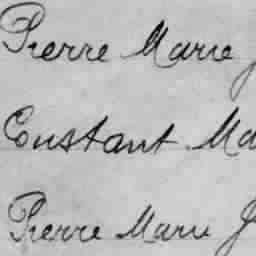 Pierre Marie J
Constant Ma
Pierre Marie J